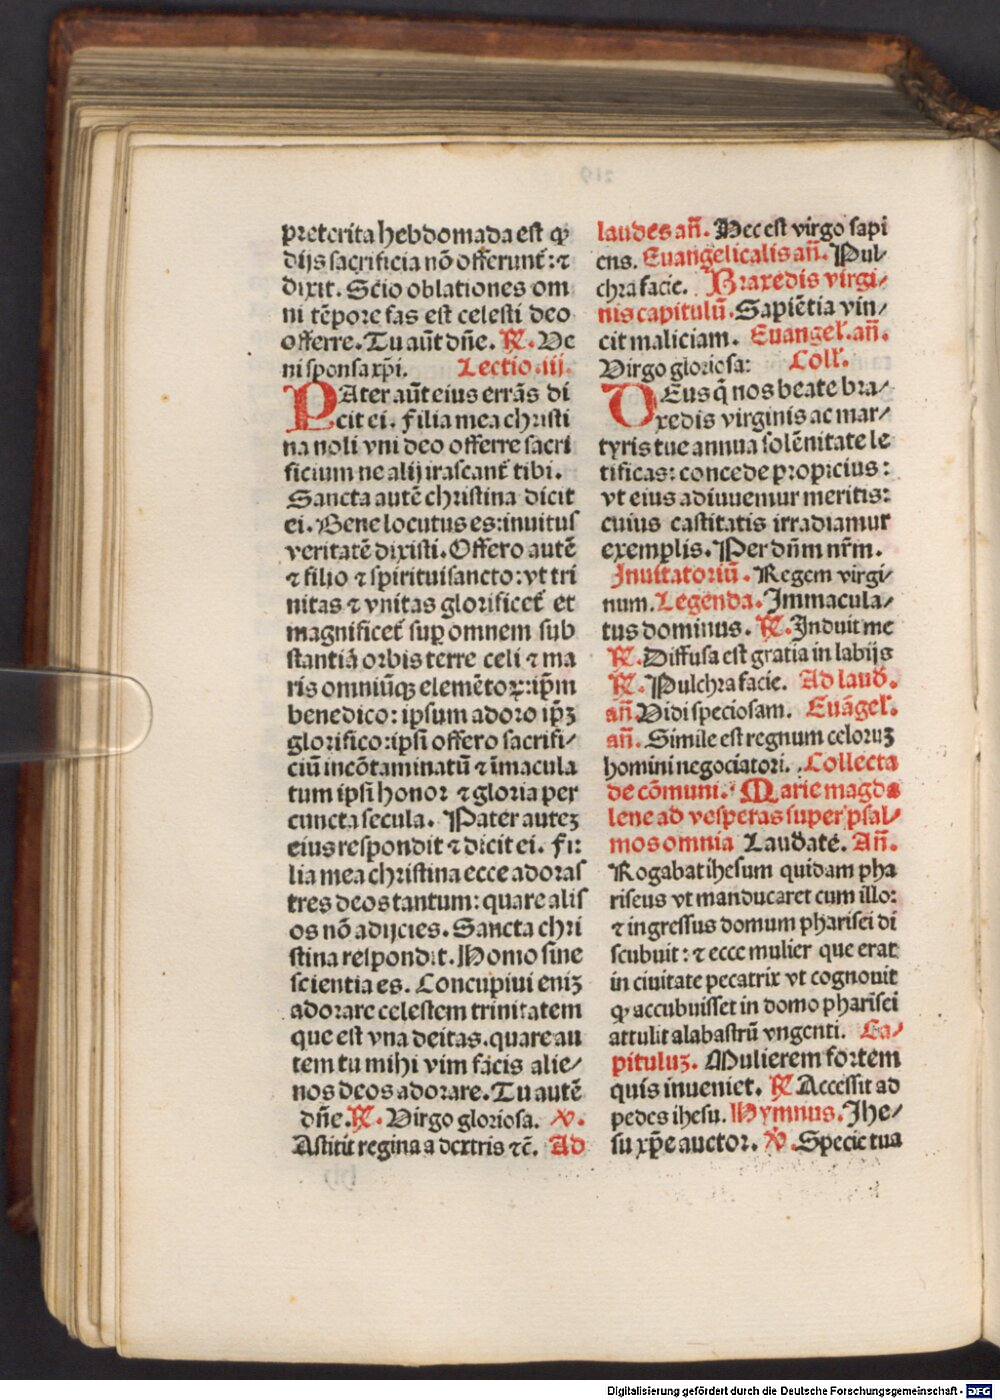 preterita hebdomada est ꝙ
dijs sacrificia nō offerunt᷑: ⁊
dixit. Scio oblationes om
ni tēpore fas est celesti deo
offerre. Tu aūt dn̄e. ℟. Ue
ni sponsa xp̄i. Lectio .iij.
PAter aūt eius errās di
cit ei. Filia mea christi
na noli vni deo offerre sacri
ficium ne alij irascant᷑ tibi.
Sancta autē christina dicit
ei. Bene locutus es: inuitus
veritatē dixisti. Offero autē
⁊ filio ⁊ spirituisancto: vt tri
nitas ⁊ vnitas glorificet᷑ et
magnificet᷑ suꝑ omnem sub
stantiā orbis terre celi ⁊ ma
ris omniūqꝫ elemētoꝝ: ip̄m
benedico: ipsum adoro ip̄ꝫ
glorifico: ipsi offero sacrifi⸗
ciū incōtaminatū ⁊ īmacula
tum ipsi honor ⁊ gloria per
cuncta secula. Pater auteꝫ
eius respondit ⁊ dicit ei. Fi⸗
lia mea christina ecce adoras
tres deos tantum: quare alis
os nō adijcies. Sancta chri
stina respondit. Homo sine
scientia es. Concupiui eniꝫ
adorare celestem trinitatem
que est vna deitas. quare au
tem tu mihi vim facis alie⸗
nos deos adorare. Tu autē
dn̄e. ℟. Virgo gloriosa. ℣.
Astitit regina a dextris ⁊c̄. Ad
laudes an̄. Hec est virgo sapi
ens. Euangelicalis an̄. Pul⸗
chra facie. Braxedis virgi⸗
nis capitulū. Sapiētia vin⸗
cit maliciam. Euangel᷑. an̄.
Virgo gloriosa: Coll᷑.
DEus q̄ nos beate bra⸗
xedis virginis ac mar⸗
tyris tue annua solēnitate le
tificas: concede propicius:
vt eius adiuuemur meritis:
cuius castitatis irradiamur
exemplis. Per dn̄m nr̄m.
Inuitatoriū. Regem virgi⸗
num. Legenda. Immacula⸗
tus dominus. ℟. Induit me
℟. Diffusa est gratia in labijs
℟. Pulchra facie. Ad laud᷑.
an̄ Vidi speciosam. Euāgel᷑.
an̄. Simile est regnum celoruꝫ
homini negociatori. Collecta
de cōmuni. Marie magda
lene ad vesperas super psal⸗
mos omnia Laudate. An̄.
Rogabat ihesum quidam pha
riseus vt manducaret cum illo:
⁊ ingressus domum pharisei di
scubuit: ⁊ ecce mulier que erat
in ciuitate pecatrix vt cognouit
ꝙ accubuisset in domo pharisei
attulit alabastrū vngenti. Ca⸗
pituluꝫ. Mulierem fortem
quis inueniet. ℟ Accessit ad
pedes ihesu. Hymnus. Ihe⸗
su xp̄e auctor. ℣. Specie tua
Digitalisierung gefördert durch die Deutsche Forschungsgemeinschaft - DFG